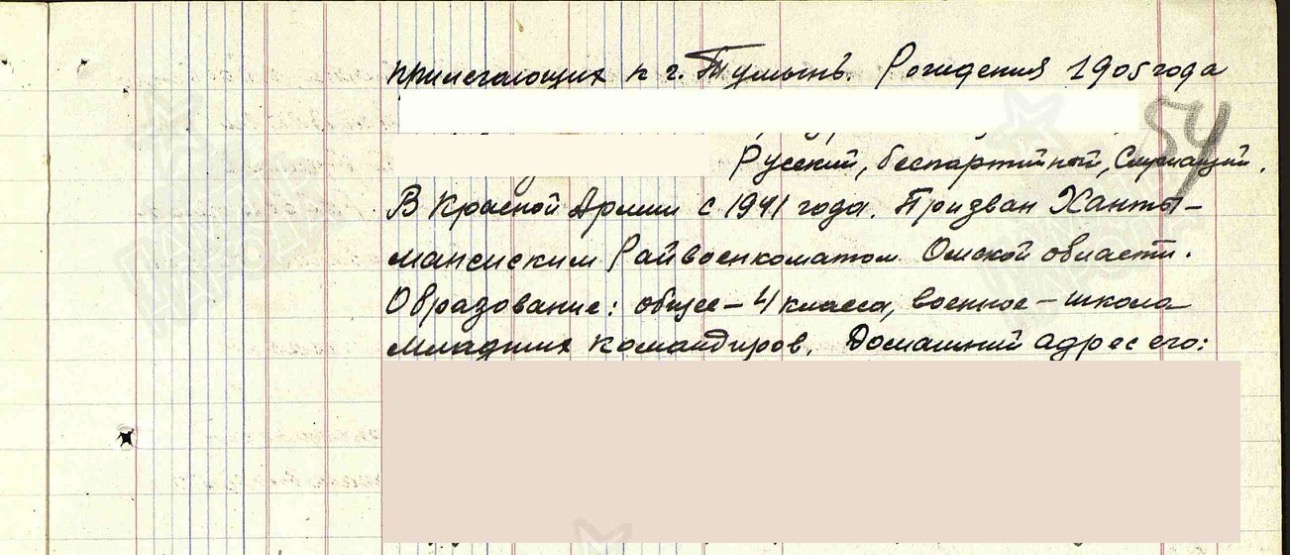 прилегающих к г. Тумынь. Рождения 1905 года
54
Русский, беспартийный, Служащий.
В Красной Армии с 1941 года. Призван Ханты-
мансиским Райвоенкоматом Омской области.
Образование: общее – 4 класса, военное – школа
младших командиров. Домашний адрес его: